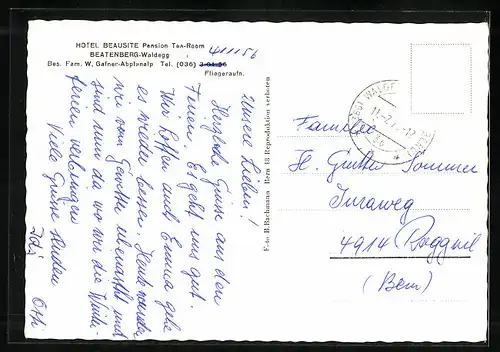 HOTEL BEAUSITE Pension Tea-Room
BEATENBERG-Waldegg
Bes. Fam. W. Gafner-Abplanalp Tel. (036) 3 04 56
411156
Fliegeraufn.
Unsere Lieben!
Herzliche Grüsse aus den
Ferien. Es geht uns gut.
Wir hoffen auch Emma gehe
es wieder besser. Heute wurden
wir vom Gewitter überrascht und
sind nun da wo wir die Winter-
ferien verbringen
Viele Grüsse senden
Foto B. Bachmann Bern 18 Reproduktion verboten
Familie
H. Günther Sommer
Juraweg
4914 Roggwil
(Bern)